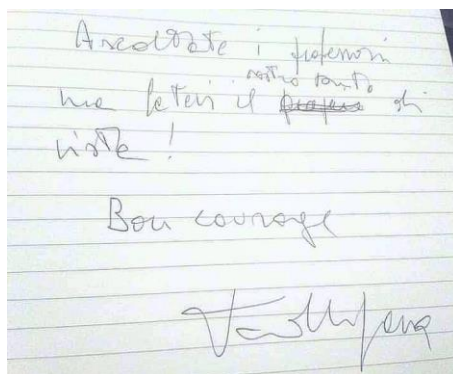 Ascoltate i professori
ma fatevi il vostro punto di
vista!
Bon courage